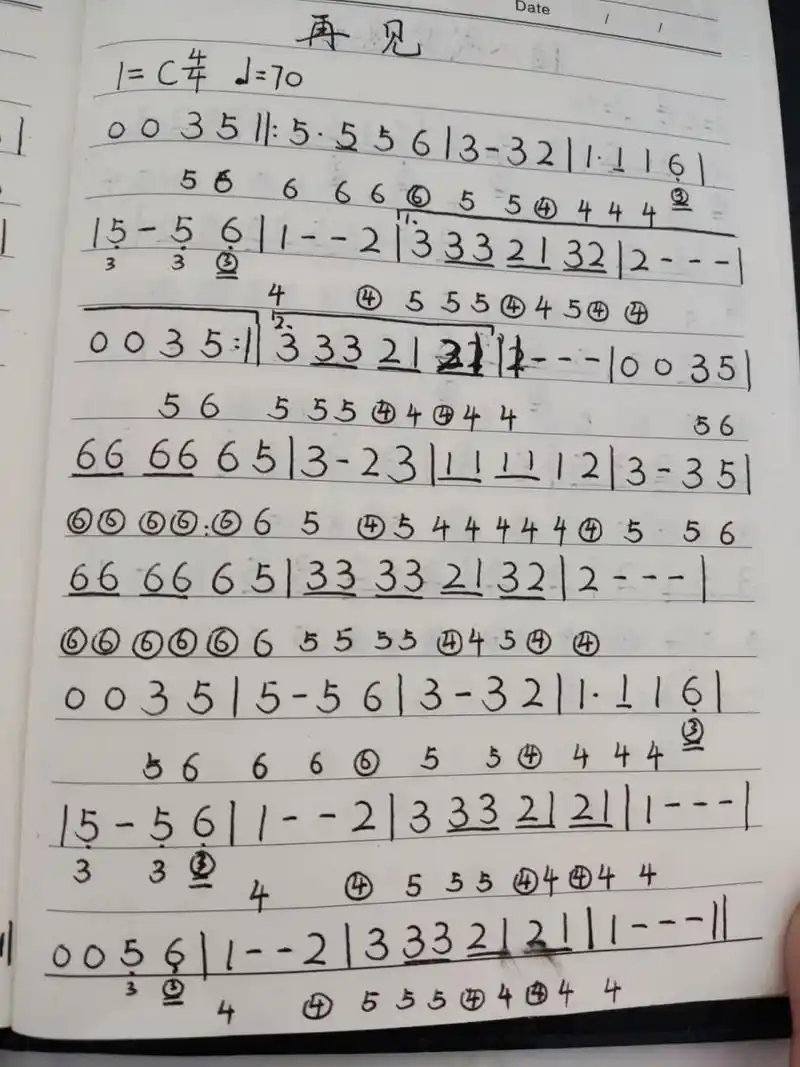 Date / /
再见
1=C 4/4 ♩=70
0 0 3 5 ||: 5 · 5 5 6 | 3 - 3 2 | 1 · 1 1 6 |
5 6 6 6 6 ⑥ 5 5 ④ 4 4 4 ③
| 5 - 5 6 | 1 - - 2 | 1. 3 3 3 2 1 3 2 | 2 - - - |
3 3 ③ 4 ④ 5 5 5 ④ 4 5 ④ ④
0 0 3 5 :|| 2. 3 3 3 2 1 2 1 | 1 - - - | 0 0 3 5 |
5 6 5 5 5 ④ 4 ④ 4 4 5 6
6 6 6 6 6 5 | 3 - 2 3 | 1 1 1 1 1 2 | 3 - 3 5 |
⑥ ⑥ ⑥ ⑥ . ⑥ 6 5 ④ 5 4 4 4 4 4 ④ 5 5 6
6 6 6 6 6 5 | 3 3 3 3 2 1 3 2 | 2 - - - |
⑥ ⑥ ⑥ ⑥ ⑥ 6 5 5 5 5 ④ 4 5 ④ ④
0 0 3 5 | 5 - 5 6 | 3 - 3 2 | 1 · 1 1 6 |
5 6 6 6 ⑥ 5 5 ④ 4 4 4 ③
| 5 - 5 6 | 1 - - 2 | 3 3 3 2 1 2 1 | 1 - - - |
3 3 ③ 4 ④ 5 5 5 ④ 4 ④ 4 4
0 0 5 6 | 1 - - 2 | 3 3 3 2 1 2 1 | 1 - - - ||
3 ③ 4 ④ 5 5 5 ④ 4 ④ 4 4